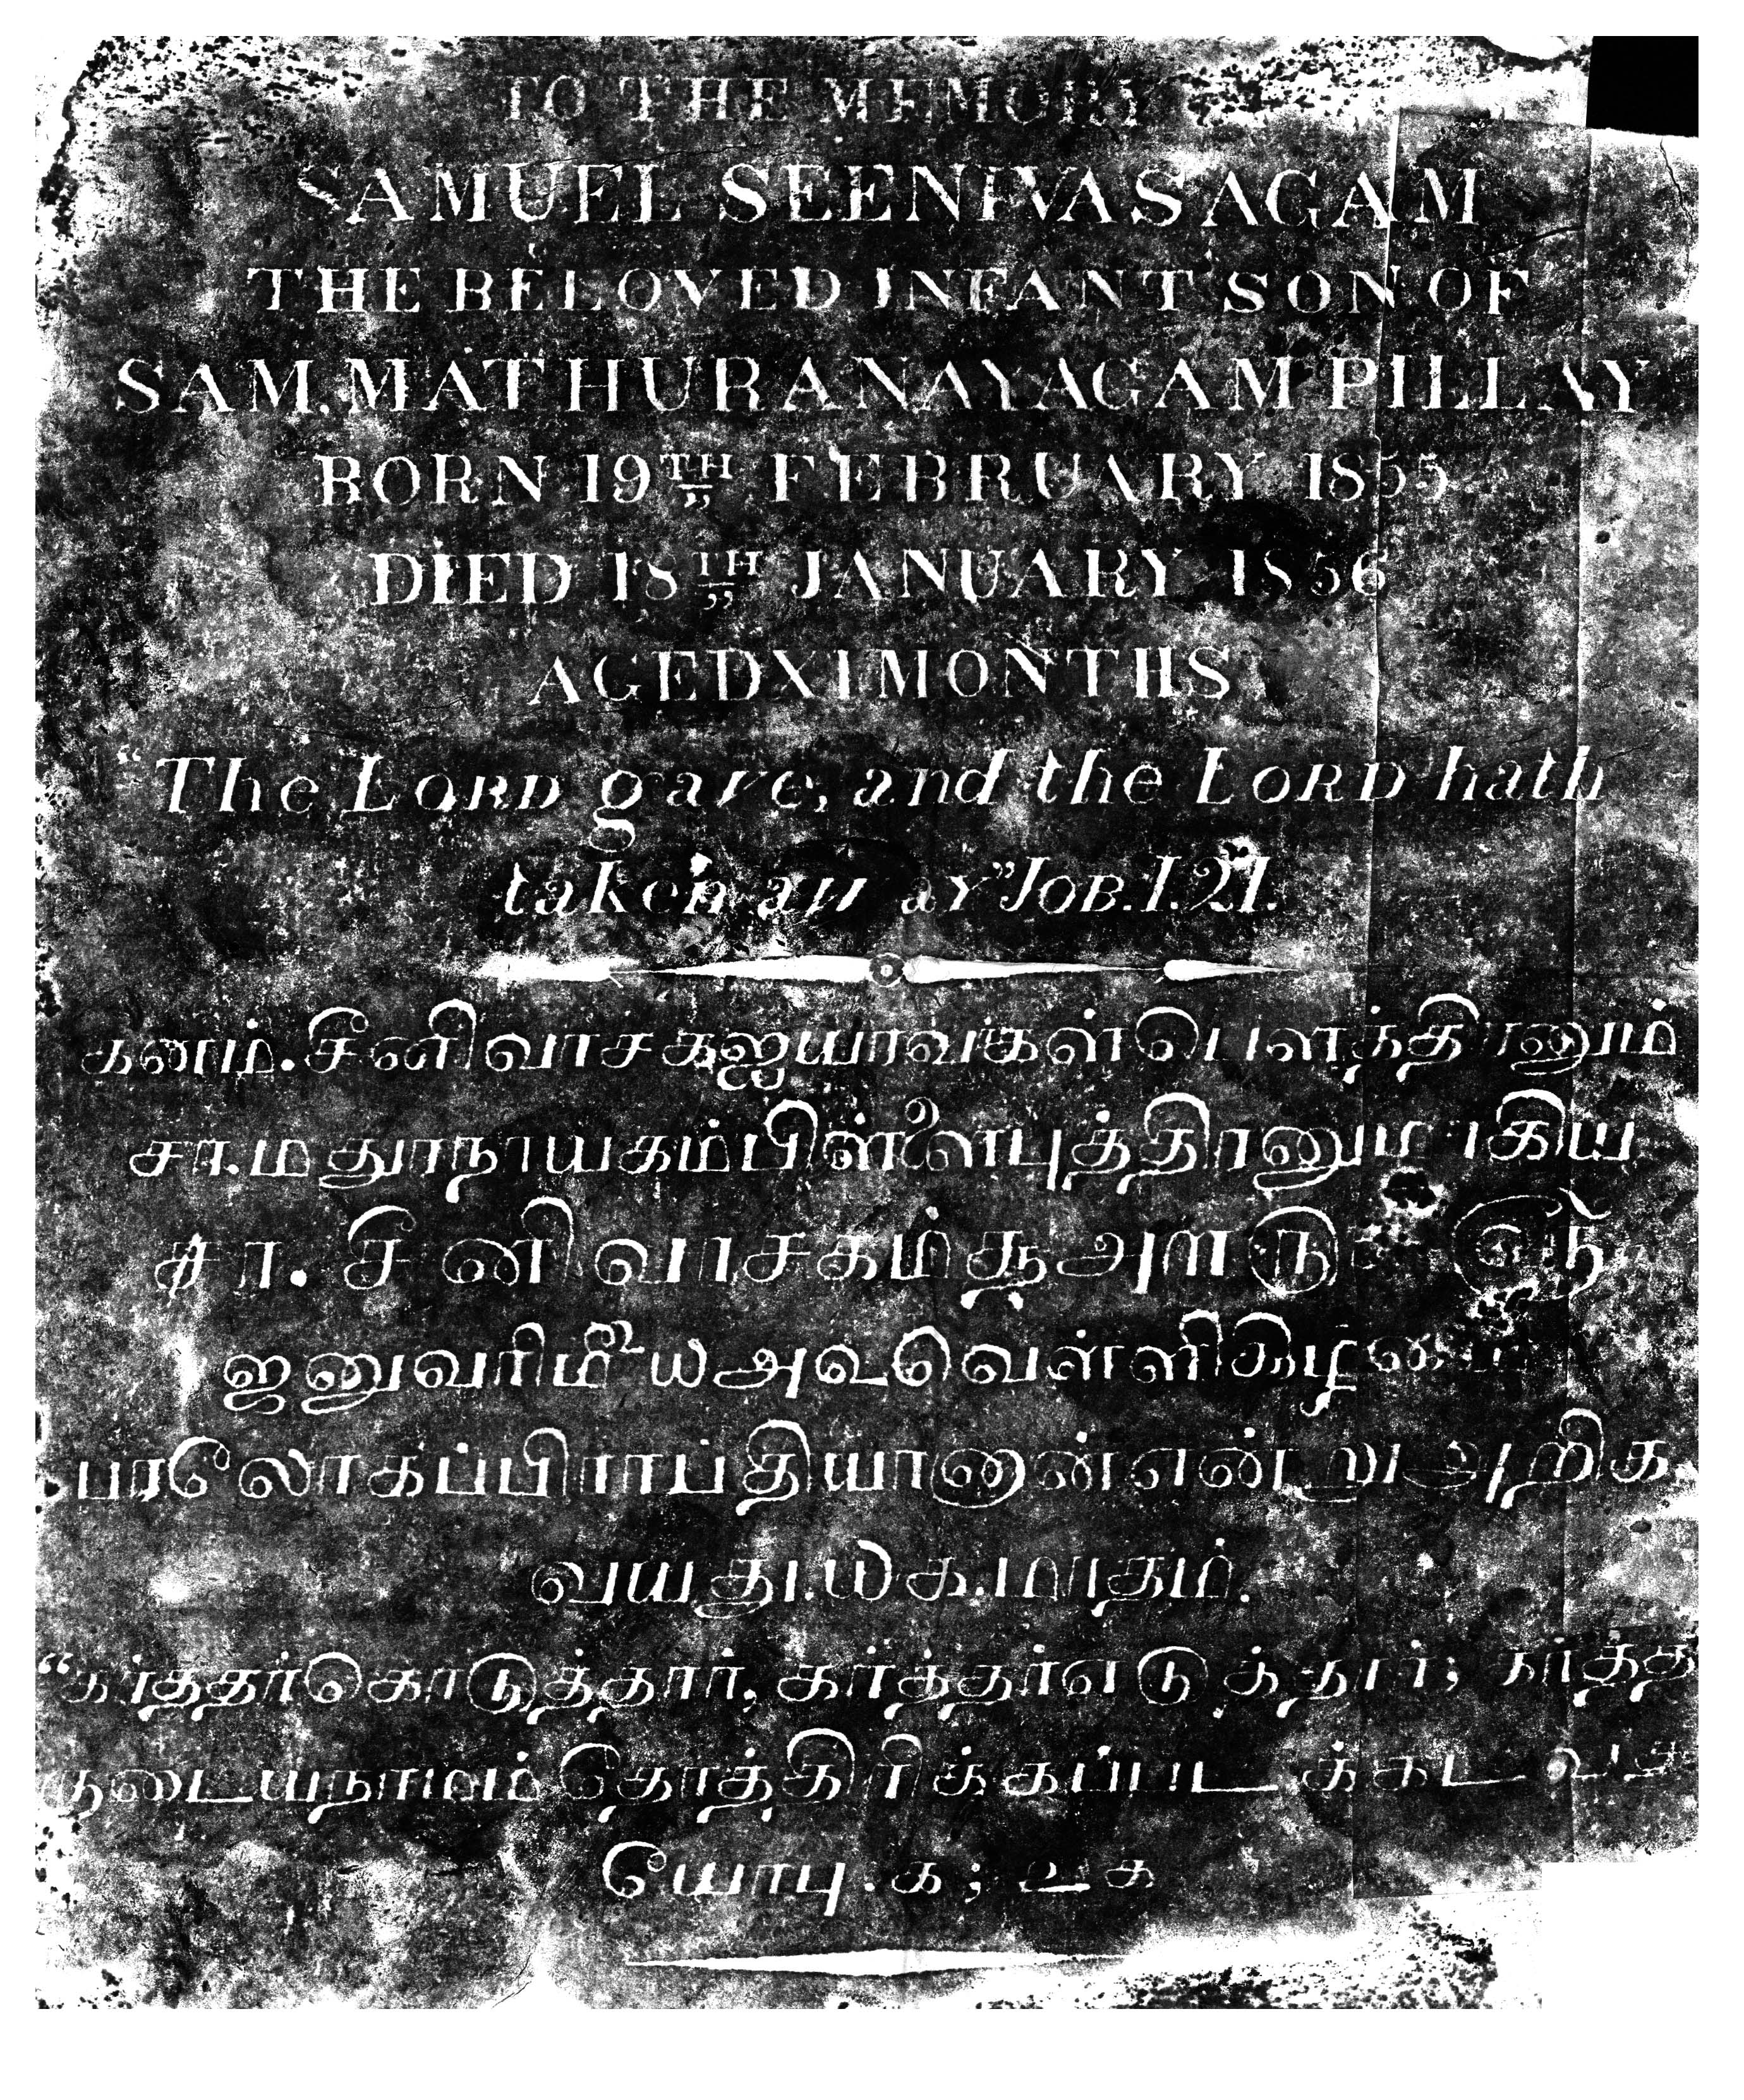 TO THE MEMORY
SAMUEL SEENIVASAGAM
THE BELOVED INFANT SON OF
SAM. MATHURANAYAGAM PILLAY
BORN 19TH FEBRUARY 1855
DIED 18TH JANUARY 1856
AGED XI MONTHS
“The LORD gave, and the LORD hath
taken away” JOB. I. 21.
கனம். சீனிவாசக ஐயாவர்கள் பௌத்திரனும்
சா. மதுரநாயகம்பிள்ளை புத்திரனுமாகிய
சா. சீனிவாசகம் ௲அளரு
ஜனுவரிமீ ௰அஉ வெள்ளிகிழமை
பரலோகப்பிராப்தியானான் என்று அறிக
வயது. ௰க. மாதம்.
“கர்த்தர் கொடுத்தார், கர்த்தர் எடுத்தார்; கர்த்த
ருடைய நாமம் தோத்திரிக்கப்படக்கட
யோபு. க; உக